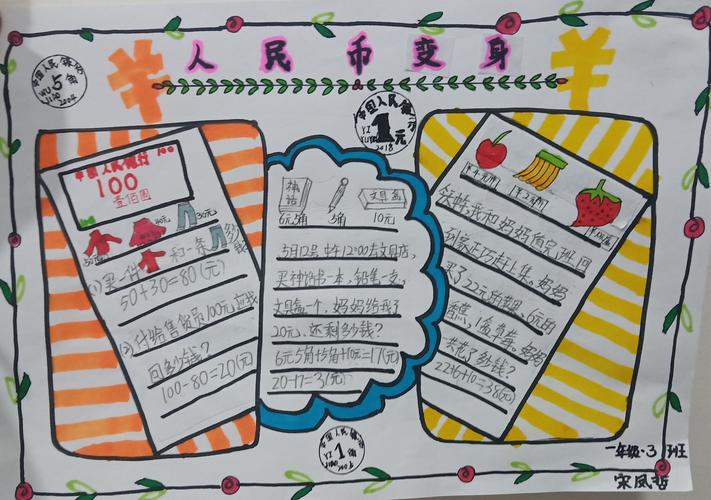 人民币变身
中国人民银行
5角
WU JIAO
2004
中国人民银行
1元
YI YUAN
2018
中国人民银行
100
壹佰圆
50元
30元
(1)买一件 和一条 多少钱?
50+30=80(元)
(2)付给售货员100元,应找
回多少钱?
100-80=20(元)
神话
文具盒
6元5角
5角
10元
5月12号,中午12:00去文具店,
买神话书一本,铅笔一支,
文具盒一个,妈妈给我了
20元,还剩多少钱?
6元5角+5角+10元=17(元)
20-17=3(元)
我和妈妈值完班回
到家正巧赶上集。妈妈
买了22元的苹果。6元的
香蕉,1盒草莓。妈妈
一共花了多少钱?
22+6+10=38(元)
中国人民银行
1角
YI JIAO
一年级·3班
宋凤哲